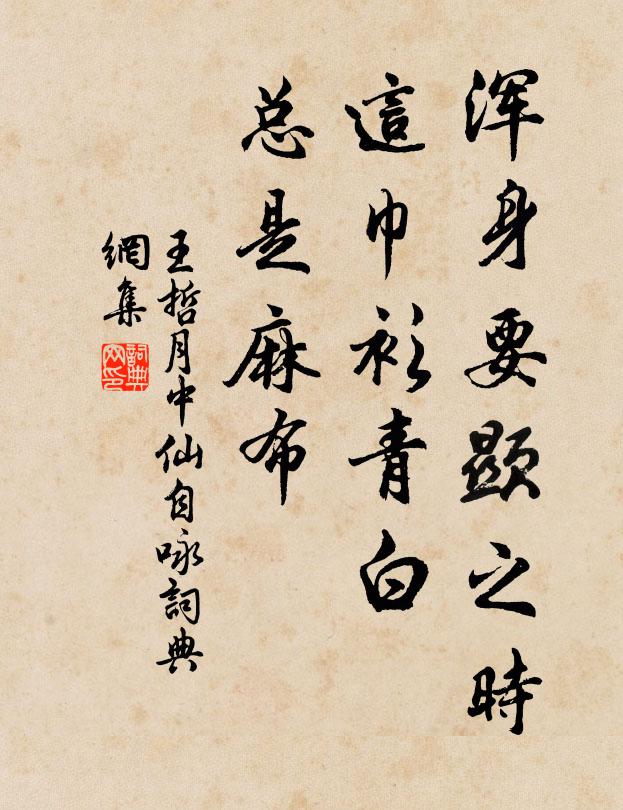 浑身要顕之時
這巾衫青白
总是麻布
王哲月中仙自咏詞典
網集
詞典
网印